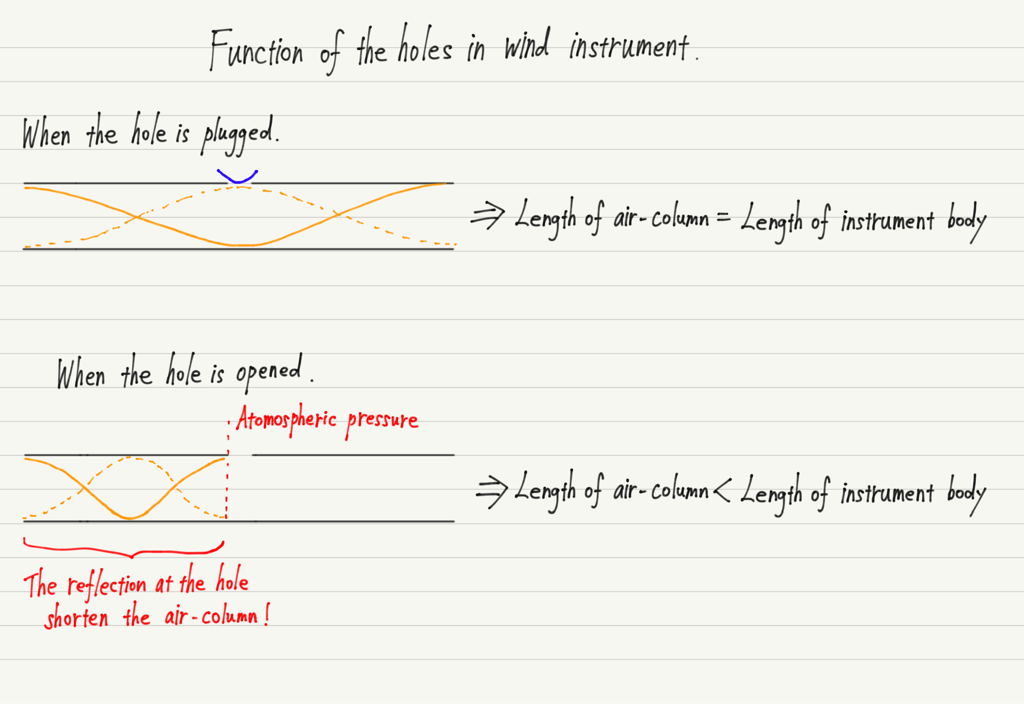 Function of the holes in wind instrument.
When the hole is plugged.
⇒ Length of air-column = Length of instrument body
When the hole is opened.
Atomospheric pressure
⇒ Length of air-column < Length of instrument body
The reflection at the hole
shorten the air-column!